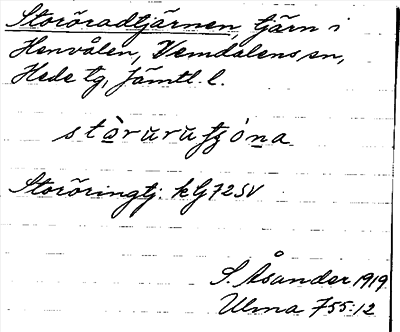 Storöradtjärnen, tjärn i
Henvålen, Vemdalens sn,
Hede tg, Jämtl. l.
stòrurutjóna
Storöringtj. kG72SV
S. Åsander 1919
Ulma 755:12